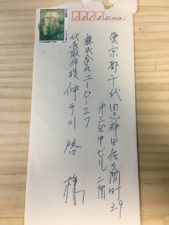 東京都千代田区神田佐久間町3-9
第三田中ビル二階
株式会社ユーローエフ
代表取締役 仲手川 啓 様